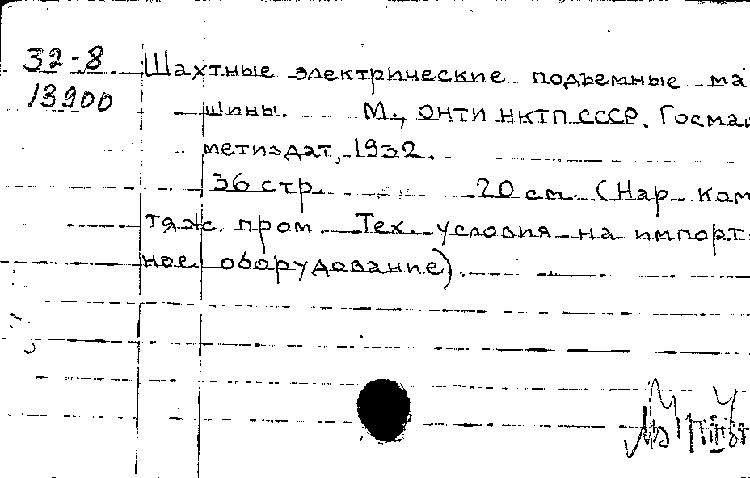 32-8 Шахтные электрические подъемные ма
13900 шины. М., ОНТИ НКТП СССР. Госмаш
метиздат, 1932.
36 стр. 20 см (Нар. ком
тяж. пром. Тех. условия на импорт-
ное оборудование).